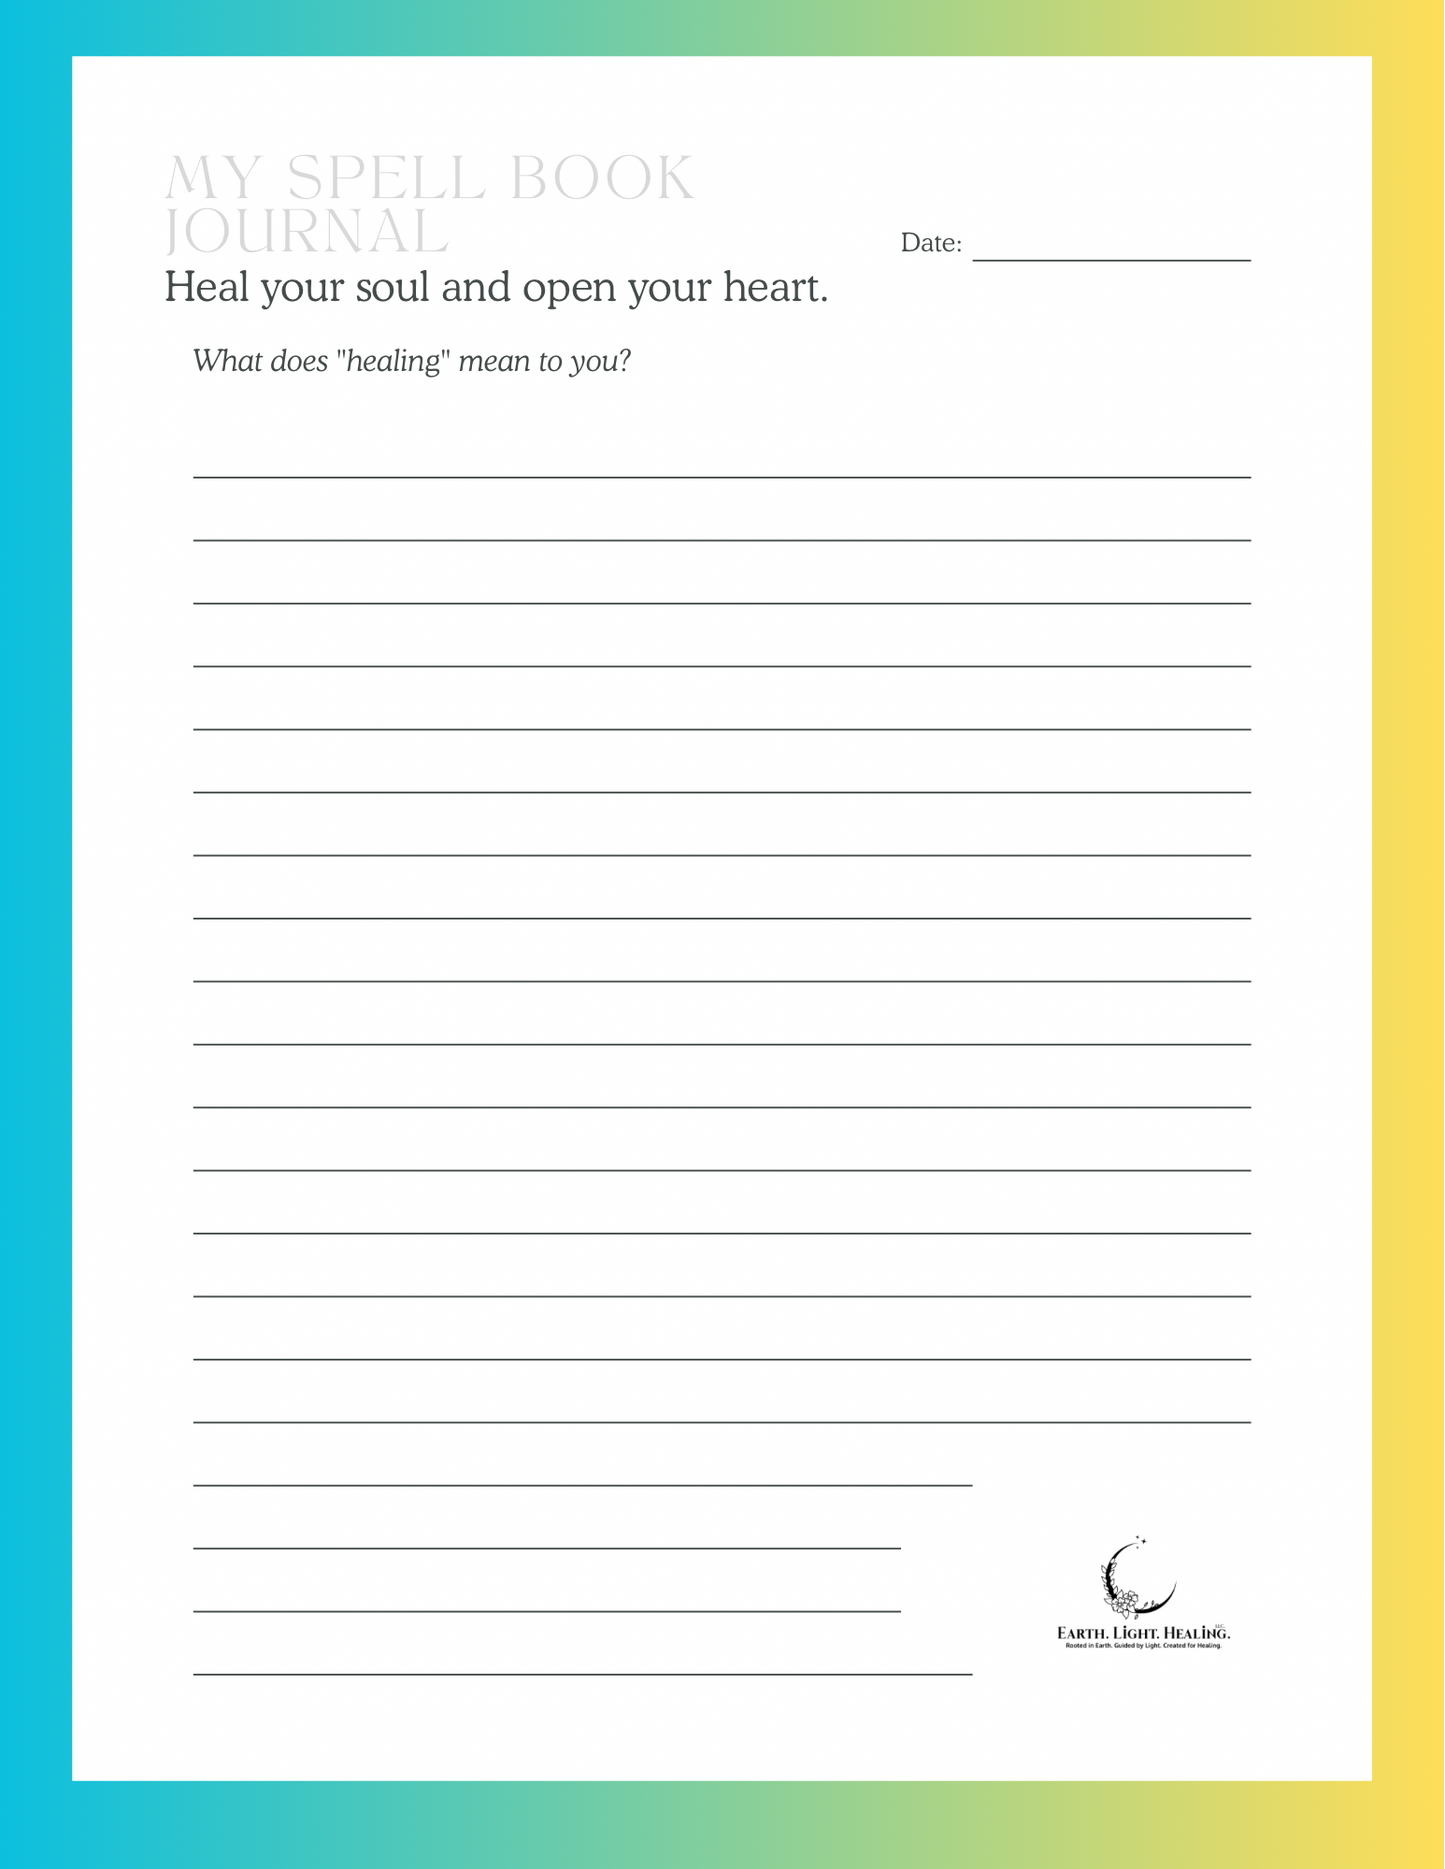 MY SPELL BOOK
JOURNAL
Date:
Heal your soul and open your heart.
What does "healing" mean to you?
LLC.
EARTH. LIGHT. HEALING.
Rooted in Earth. Guided by Light. Created for Healing.